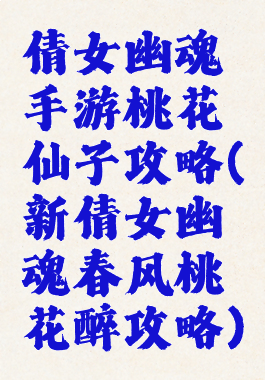 倩女幽魂
手游桃花
仙子攻略(
新倩女幽
魂春风桃
花醉攻略)